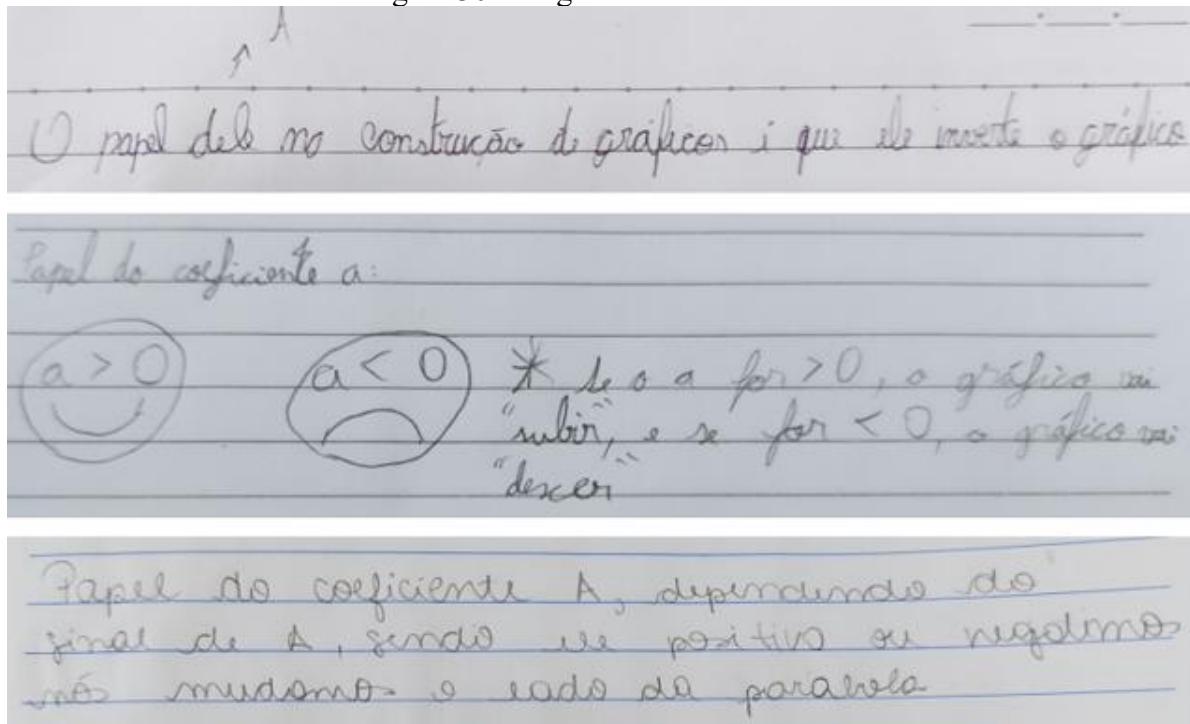 A
O papel dele na construção de gráficos é que ele inverte o gráfico
Papel do coeficiente a:
a > 0
a < 0
* se o a for > 0, o gráfico vai
"subir", e se for < 0, o gráfico vai
"descer"
Papel do coeficiente A, dependendo do
sinal de A, sendo ele positivo ou negativo
nós mudamos o lado da parabola